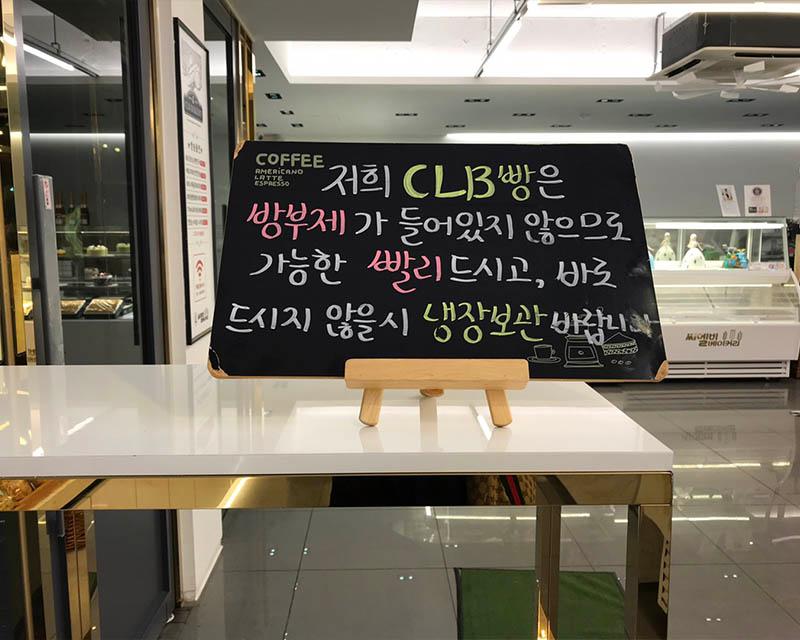 COFFEE
AMERICANO
LATTE
ESPRESSO
저희 CLB빵은
방부제가 들어있지 않으므로
가능한 빨리드시고, 바로
드시지 않을시 냉장보관 바랍니다
씨엘비
베이커리